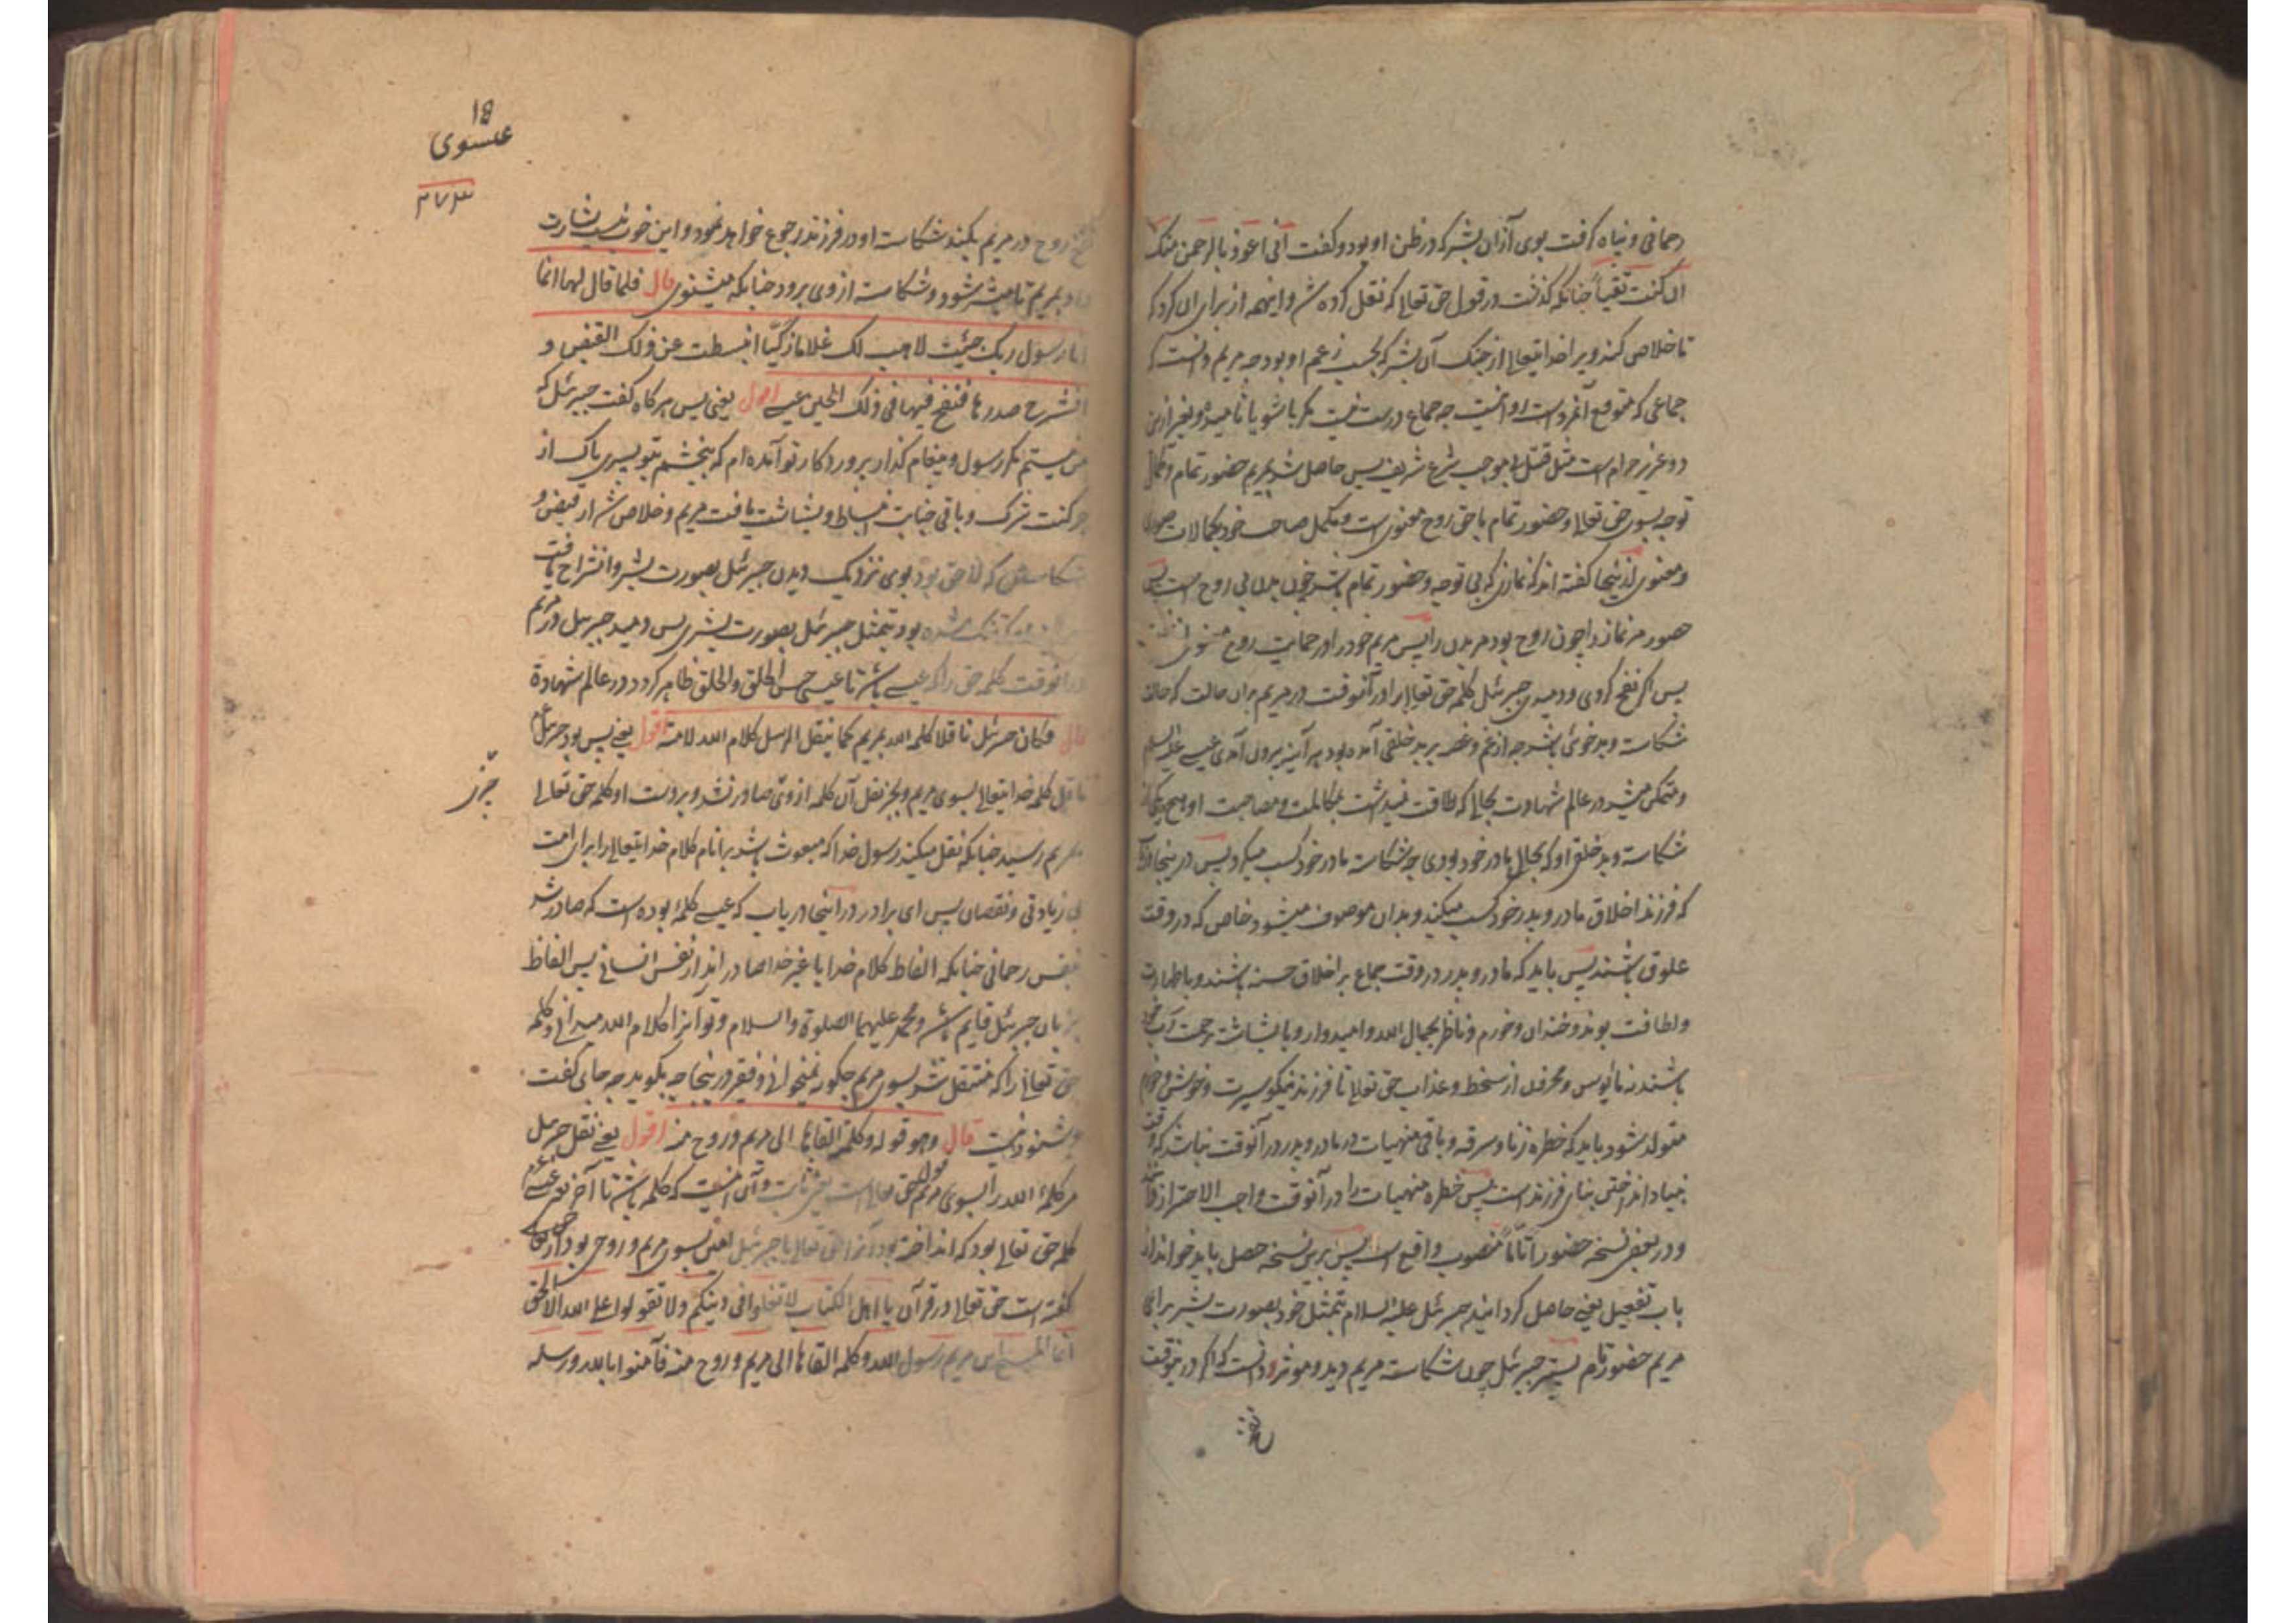 رحمانی و پناه گرفت بوی ازان بشر که در ظن او بود و گفت انی اعوذ بالرحمن منک
ان کنت تقیاً چنانکه گذشت در قول حق تعالی که نقل کرده شد و اینهمه از برای ان کرد که
تا خلاص کند ویرا خدایتعالی از چنک آن بشر که بحسب زعم او بود چه مریم دانست که
جماعی که متوقع آنمرد است او انیست چه جماع درست نیست مکر با شویا
حرام است مثل قتل الا بموجب شرع شریف پس حاصل شد بمریم حضور تمام و کمال
توجه بسوی حق تعالی و حضور تمام با حق روح معنوی است و مکمل صاحب خود بکمالات صوری
و معنوی ازینجا گفته اند که نمازی که بی توجه و حضور تمام باشد چون بدن بی روح است پس
حضور مر نماز را چون روح بود مر بدن را پس مریم خود را در حمایت روح معنوی
پس اگر نفخ کردی و دمیدی جبرئل کلمه حق تعالی را در آنوقت در مریم بران حالت که حالت
شکاست و بدخوئی باشد چه از غم و غصه بر بدخلقی آمده بود هر آینه برون آمدی عیسی علیه السلم
و متمکن میشد در عالم شهادت بحالی که طاقت نمیداشت بمکالمت و مصاحبت او هیچ یکی از
شکاست و بدخلقی او که بحال مادر خود بودی چه شکاست مادر خود کسب میکرد پس در ینجا
که فرزند اخلاق مادر و پدر خود کسب میکند و بدان موصوف میشود خاص که در وقت
علوق باشند پس باید که مادر و پدر در وقت جماع بر اخلاق حسنه باشند و با طهارت
و لطافت بوند و خندان و خورم و ناظر بجمال الله و امیدوار و با بشاشت رحمت
باشند نه مایوس و محزون از سخط و عذاب حق تعالی تا فرزند نیکو سیرت و خوش
متولد شود باید که خطره زنا و سرقه و باقی منهیات در مادر و پدر در آنوقت نباشد که وقت
بنیاد انداختن بنای فرزند است پس خطره منهیات را در آنوقت واجب الاحتراز
و در بعضی نسخه حضوراً تاماً منصوب واقع است پس برین نسخه حصل باید خواند از
باب تفعیل یعنی حاصل کردانید جبرئل علیه السلام بتمثل خود بصورت بشر برای
مریم حضور تام پستر جبرئل چون شکاست مریم دید و موثر دانست که اگر در ینوقت
18
عیسوی
۲۷۳
نفخ روح در مریم بکند شکاست او در فرزند رجوع خواهد نمود و این خوب نیست بشارت
داد بمریم تا مبشر شود و شکاست از وی برود چنانکه میشنوی قال فلما قال لها انما
انا رسول ربک جیئت لاهب لک غلاما زکیّا انبسطت عن ذلک القبض و
انشرح صدرها فنفخ فیها فی ذلک الحین عیسی اقول یعنی پس هرگاه گفت جبرئل که
من نیستم مکر رسول و پیغام کذار پروردکار تو آمده ام که ببخشم بتو پسری پاک از
چرکنت شرک و باقی خبایث انبساط و بشاشت یافت مریم و خلاص شد از قبض و
شکاستی که لاحق بود بوی نزدیک دیدن جبرئل بصورت بشر و انشراح یافت
که تنک شده بود بتمثل جبرئل بصورت بشری پس دمید جبرئل در مریم
در آنوقت کلمه حق را که عیسی باشد تا عیسی حسن الخلق والخلق ظاهر کردد در عالم شهادة
قال فکان جبرئل ناقلا کلمه الله لمریم کما ینقل الرسل کلام الله لامته اقول یعنی پس بود جبرئل
ناقل کلمه خدایتعالی بسوی مریم و بجز نقل آن کلمه از وی صادر نشد و بر دست او کلمه حق تعالی
بمریم رسید چنانکه نقل میکند رسول خدا که مبعوث باشد بر انام کلام خدایتعالی را برای امت
بی زیادتی و نقصان پس ای برادر در اینجا دریاب که عیسی کلمه بوده است که صادر شد
بنفس رحمانی چنانکه الفاظ کلام خدا یا غیر خدا صادر اند از نفس انسانی پس الفاظ
بزبان جبرئل قایم باشد و محمد علیهما الصلوة والسلام و تو آنرا کلام الله میدانی و کلمه
حق تعالی را که منتقل شد بسوی مریم چکونه نمیخوانی و فقیر در ینجا چه بکوید چه جای گفت
و شنود نیست قال وهو قوله وکلمته القاها الی مریم و روح منه اقول یعنی نقل جبرئل
مر کلمه الله را بسوی مریم قول حق تعالی است یعنی ثابت و آن اینست که کلمه باشد تا آخر یعنی عیسی
کلمه حق تعالی بود که انداخته بود آنرا حق تعالی با جبرئل امین بسوی مریم و روح بود از حق تعالی
گفته است حق تعالی در قرآن یا اهل الکتاب لا تغلوا فی دینکم ولا تقولوا علی الله الا الحق
انما المسیح ابن مریم رسول الله وکلمه القاها الی مریم و روح منه فآمنوا بالله ورسله